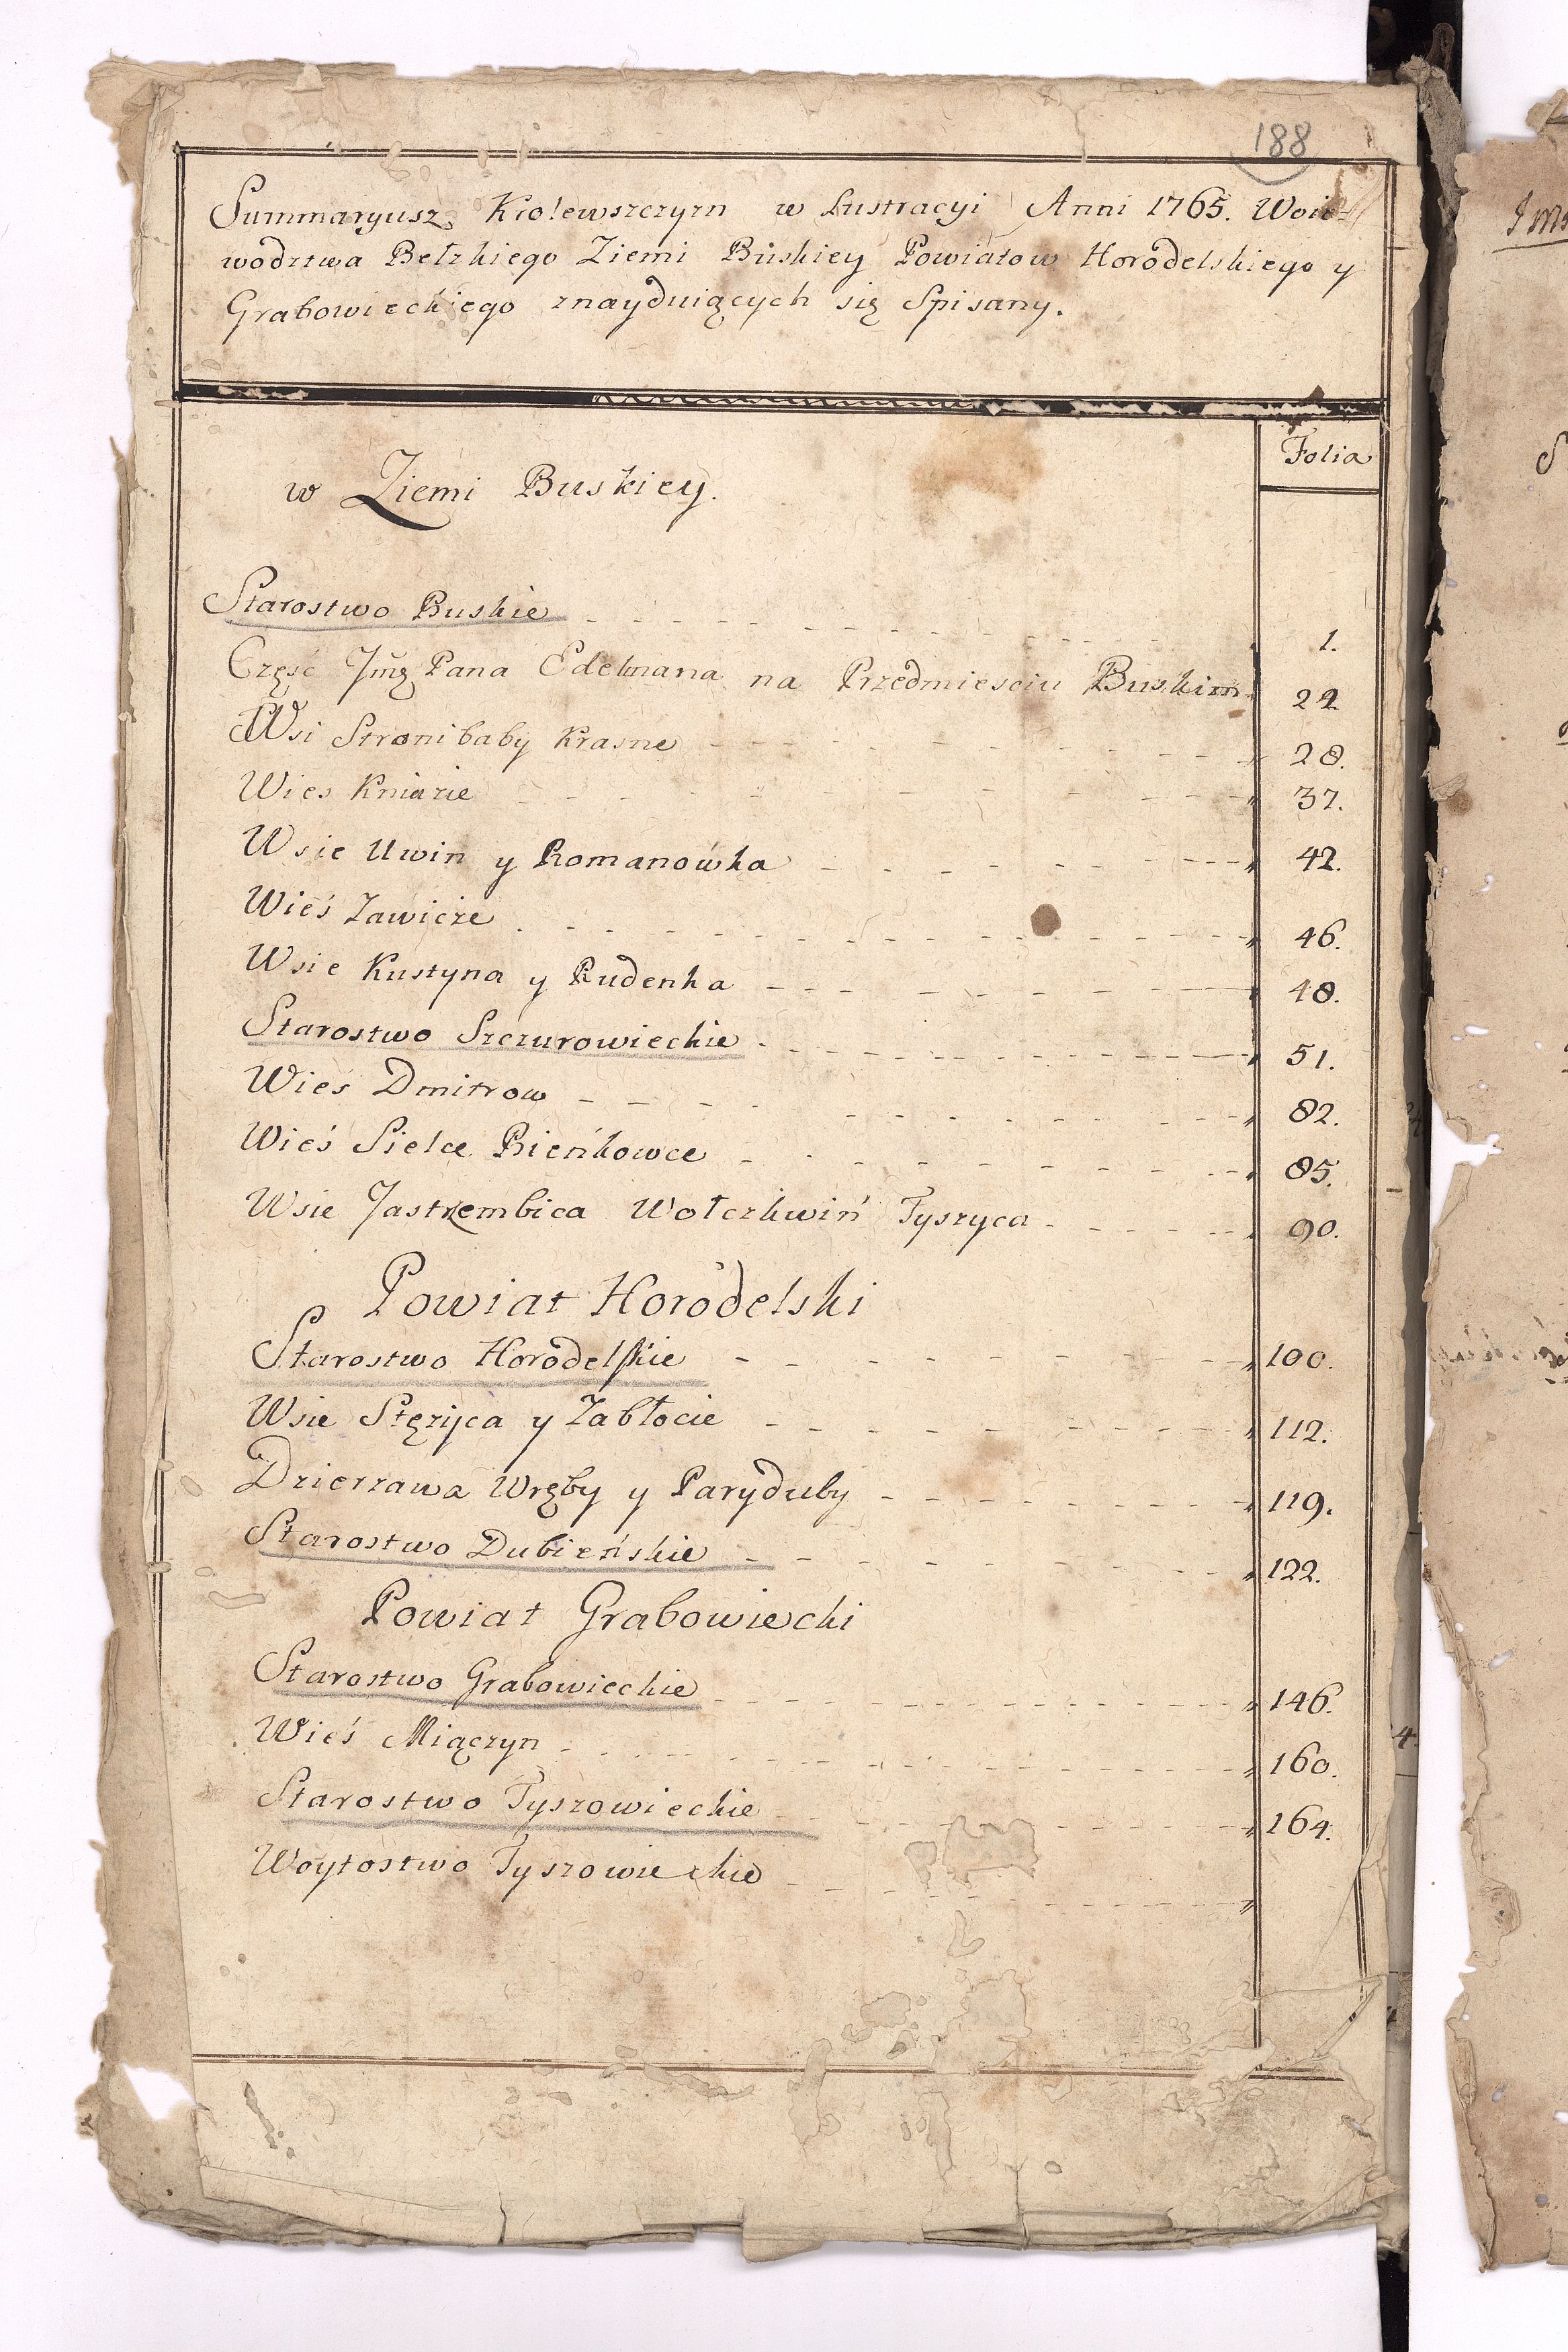 188
Summaryusz Krolewszczyzn w Lustracyi Anni 1765. Woie-
wodztwa Bełzkiego Ziemi Buskiey Powiatow Horodelskiego y
Grabowieckiego znayduiących się Spisany.
Folia
w Ziemi Buskiey.
Starostwo Buskie 1.
Część Jmę Pana Edelmana na Przedmiesciu Buskim 22
Wsi Stronibaby Krasne 28.
Wies Kniazie 37.
Wsie Uwin y Romanówka 42.
Wieś Zawicze 46.
Wsie Kustyna y Rudenka 48.
Starostwo Szczurowieckie 51.
Wies Dmitrow 82.
Wieś Sielce Bieńkowce 85.
Wsie Jastrzembica Wołczkwiń Tyszyca 90.
Powiat Horodelski
Starostwo Horodelskie 100.
Wsie Stęzyca y Zabłocie 112.
Dzierzawa Wręby y Paryduby 119.
Starostwo Dubieńskie 122.
Powiat Grabowiecki
Starostwo Grabowieckie 146.
Wieś Miączyn 160.
Starostwo Tyszowieckie 164.
Woytostwo Tyszowieckie